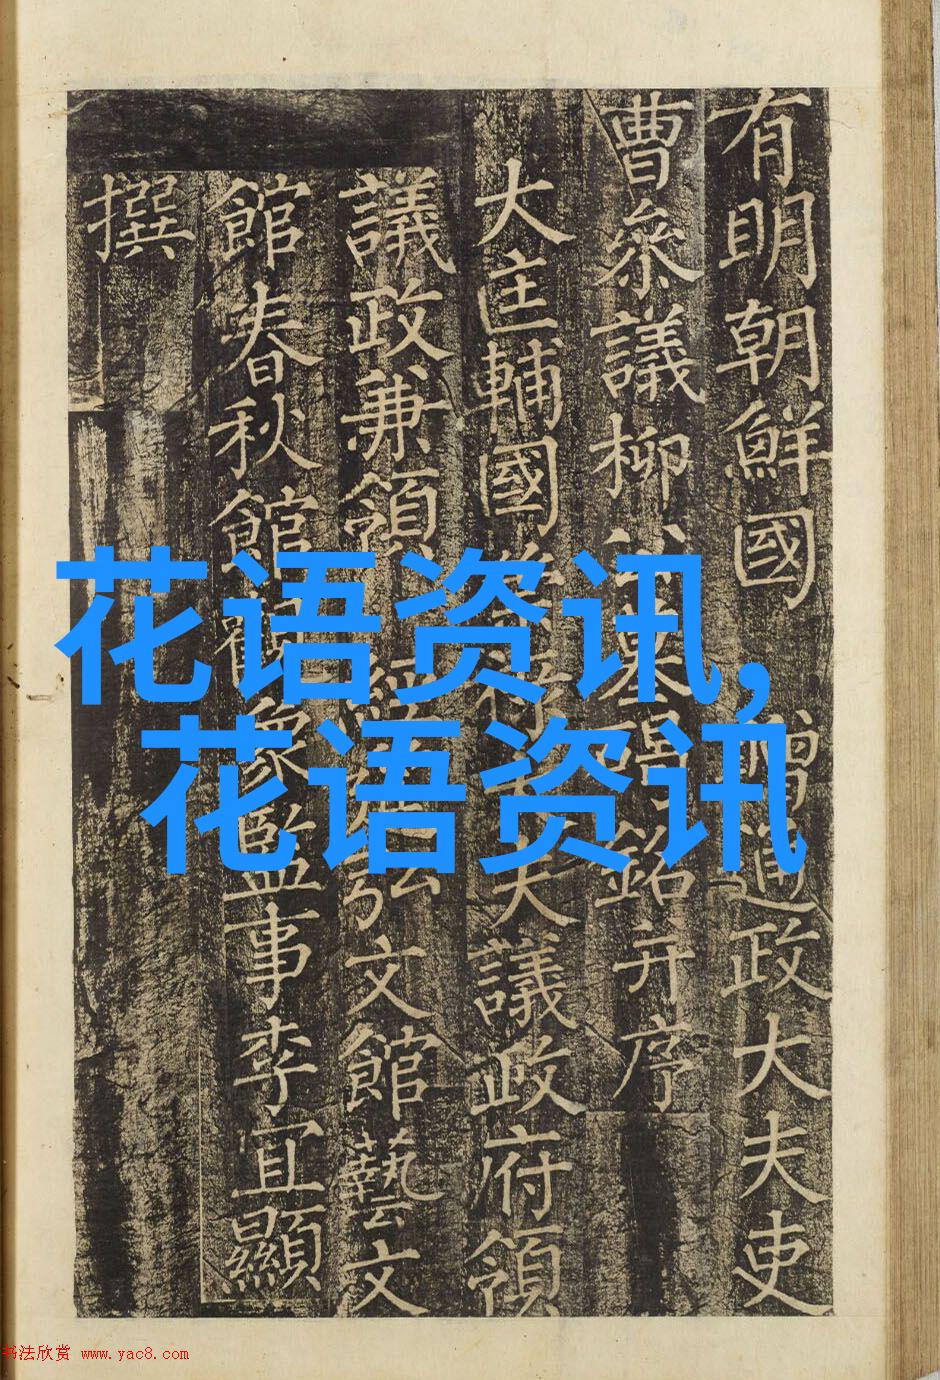 有明朝鮮國 贈通政大夫吏
曹叅議柳公墓碣銘并序
大匡輔國崇祿大夫議政府領
議政兼領 經筵弘文館藝文
館春秋館觀象監事李宜顯
撰
花语资讯,
花语资讯
书法欣赏 www.yac8.com